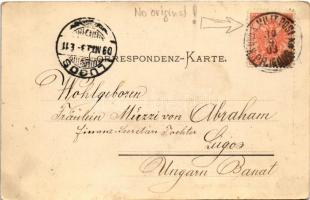 No original!
CORRESPONDENZ-KARTE.
LUGOS
Wohlgeboren
Fräulein Mizzi von Abraham
Finanz Secretärs Tochter
Lugos
Ungarn Banat